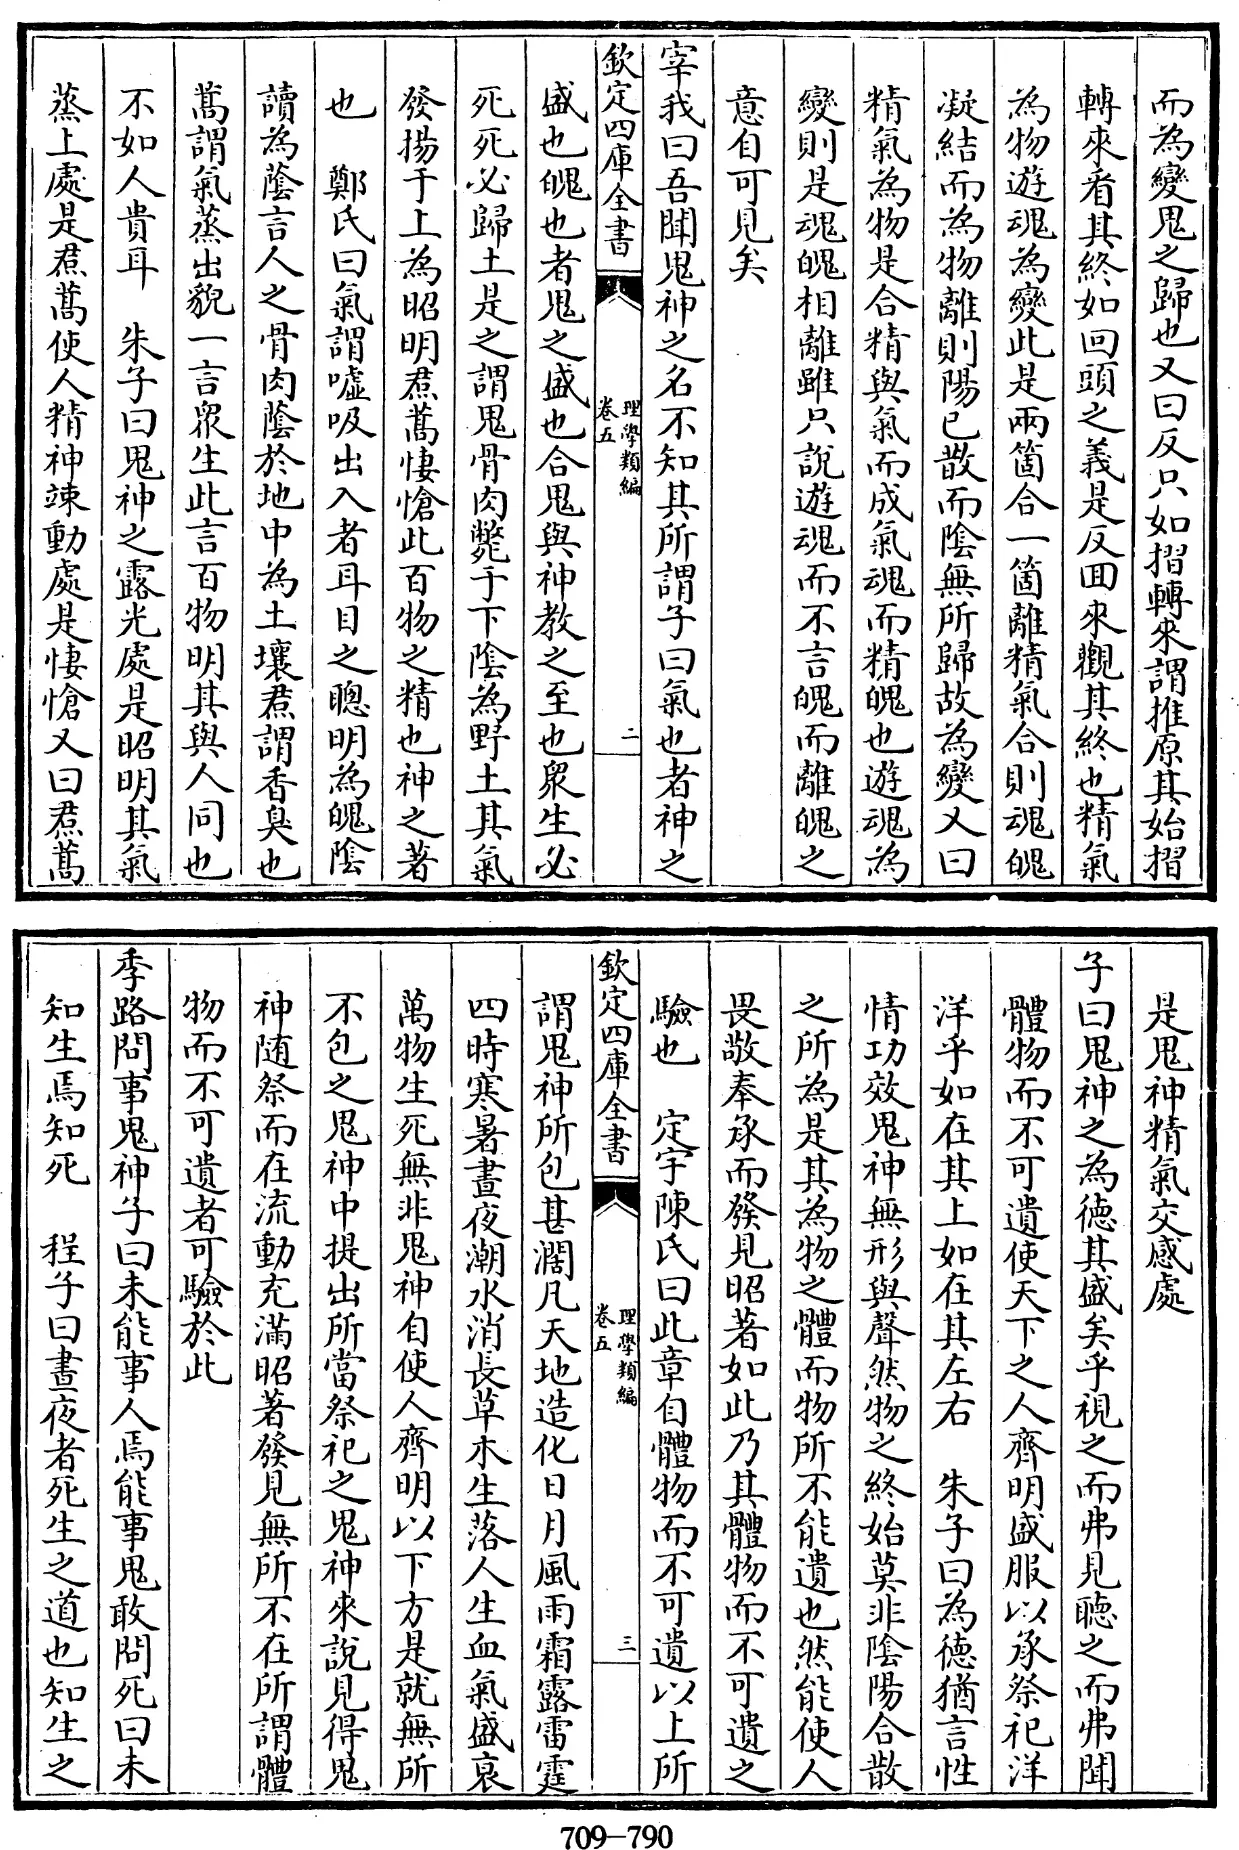 而為變鬼之歸也又曰反只如摺轉來謂推原其始摺
轉來看其終如回頭之義是反回來觀其終也精氣
為物遊魂為變此是兩箇合一箇離精氣合則魂魄
凝結而為物離則陽已散而陰無所歸故為變又曰
精氣為物是合精與氣而成氣魂而精魄也遊魂為
變則是魂魄相離雖只說遊魂而不言魄而離魄之
意自可見矣
宰我曰吾聞鬼神之名不知其所謂子曰氣也者神之
欽定四庫全書
理學類編
卷五
二
盛也魄也者鬼之盛也合鬼與神教之至也眾生必
死死必歸土是之謂鬼骨肉斃于下陰為野土其氣
發揚于上為昭明焄蒿悽愴此百物之精也神之著
也 鄭氏曰氣謂噓吸出入者耳目之聰明為魄陰
讀為蔭言人之骨肉蔭於地中為土壤焄謂香臭也
蒿謂氣蒸出貌一言眾生此言百物明其與人同也
不如人貴耳 朱子曰鬼神之露光處是昭明其氣
蒸上處是焄蒿使人精神竦動處是悽愴又曰焄蒿
是鬼神精氣交感處
子曰鬼神之為德其盛矣乎視之而弗見聽之而弗聞
體物而不可遺使天下之人齊明盛服以承祭祀洋
洋乎如在其上如在其左右 朱子曰為德猶言性
情功效鬼神無形與聲然物之終始莫非陰陽合散
之所為是其為物之體而物所不能遺也然能使人
畏敬奉承而發見昭著如此乃其體物而不可遺之
驗也 定宇陳氏曰此章自體物而不可遺以上所
欽定四庫全書
理學類編
卷五
三
謂鬼神所包甚濶凡天地造化日月風雨霜露雷霆
四時寒暑晝夜潮水消長草木生落人生血氣盛衰
萬物生死無非鬼神自使人齊明以下方是就無所
不包之鬼神中提出所當祭祀之鬼神來說見得鬼
神隨祭而在流動充滿昭著發見無所不在所謂體
物而不可遺者可驗於此
季路問事鬼神子曰未能事人焉能事鬼敢問死曰未
知生焉知死 程子曰晝夜者死生之道也知生之
709-790